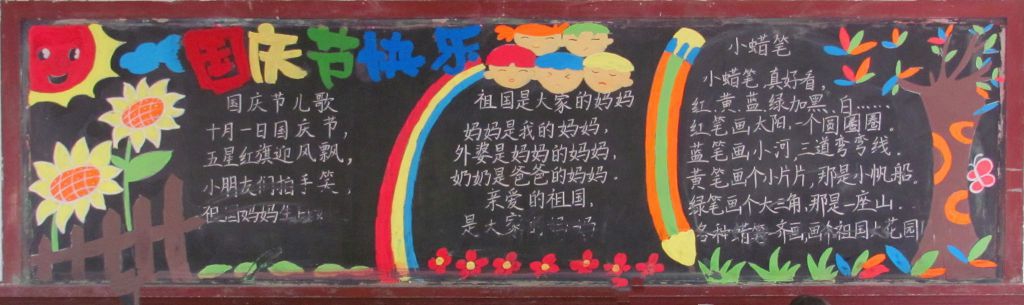 国庆节快乐
国庆节儿歌
十月一日国庆节，
五星红旗迎风飘，
小朋友们拍手笑，
祖国妈妈生
祖国是大家的妈妈
妈妈是我的妈妈，
外婆是妈妈的妈妈，
奶奶是爸爸的妈妈．
亲爱的祖国，
是大家的妈妈
小蜡笔
小蜡笔真好看，
红黄蓝绿加黑、白……
红笔画太阳，一个圆圈圈。
蓝笔画小河，三道弯弯线．
黄笔画个小片片，那是小帆船。
绿笔画个大三角，那是一座山．
各种蜡笔一齐画，画个祖国大花园